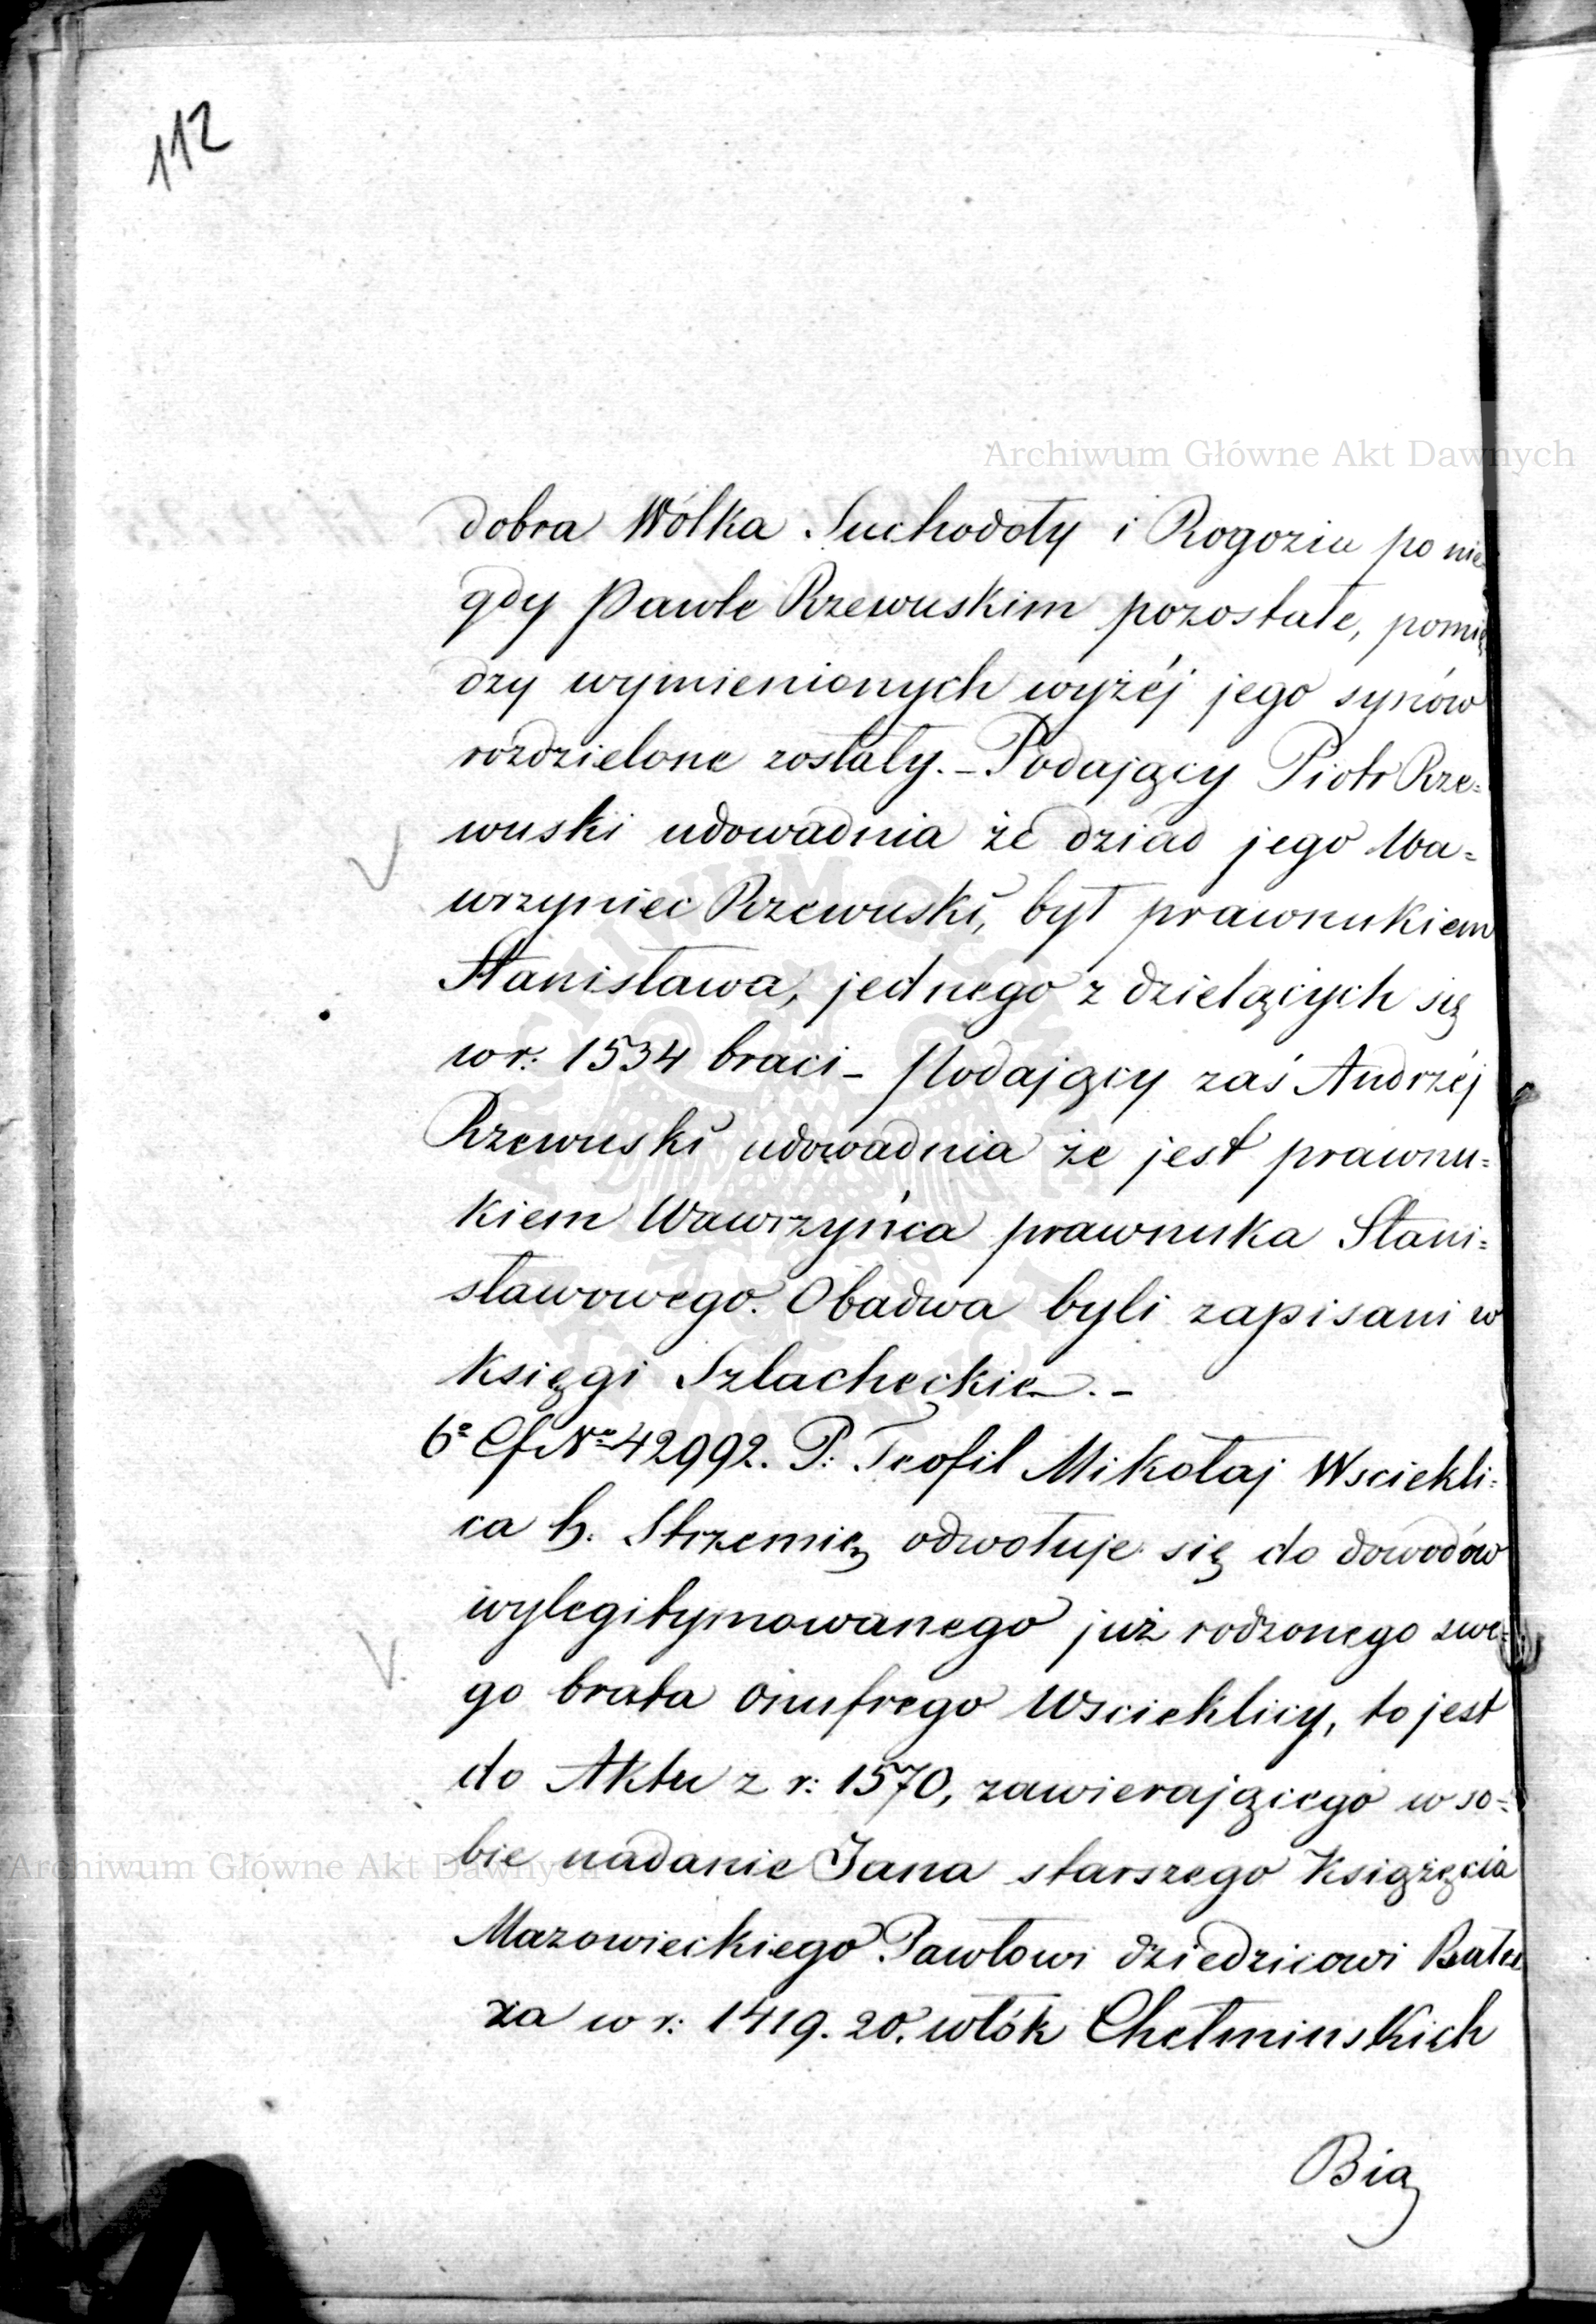 112
Archiwum Główne Akt Dawnych
dobra Wólka Suchodoły i Rogozia po nie
gdy Pawle Rzewuskim pozostałe, pomię
dzy wymienionych wyżéj jego synów
rozdzielone zostały. – Podający Piotr Rze=
wuski udowadnia że dziad jego Wa=
wrzyniec Rzewuski, był prawnukiem
Stanisława, jednego z dzielących się
w r: 1534 braci – Podający zaś Andrzéj
Rzewuski udowadnia że jest prawnu=
kiem Wawrzyńca prawnuka Stani=
sławowego. Obadwa byli zapisani w
księgi Szlacheckie. –
6º Cf Nº 42992. P: Teofil Mikołaj Wsciekli=
ca h. Strzemię odwołuje się do dowodów
wylegitymowanego już rodzonego swe=
go brata Onufrego Wscieklicy, to jest
do Aktu z r: 1570, zawierającego w so=
bie nadanie Jana starszego Książęcia
Archiwum Główne Akt Dawnych
Mazowieckiego Pawłowi dziedzicowi
za w r: 1419. 20. włók Chełminskich
Bia